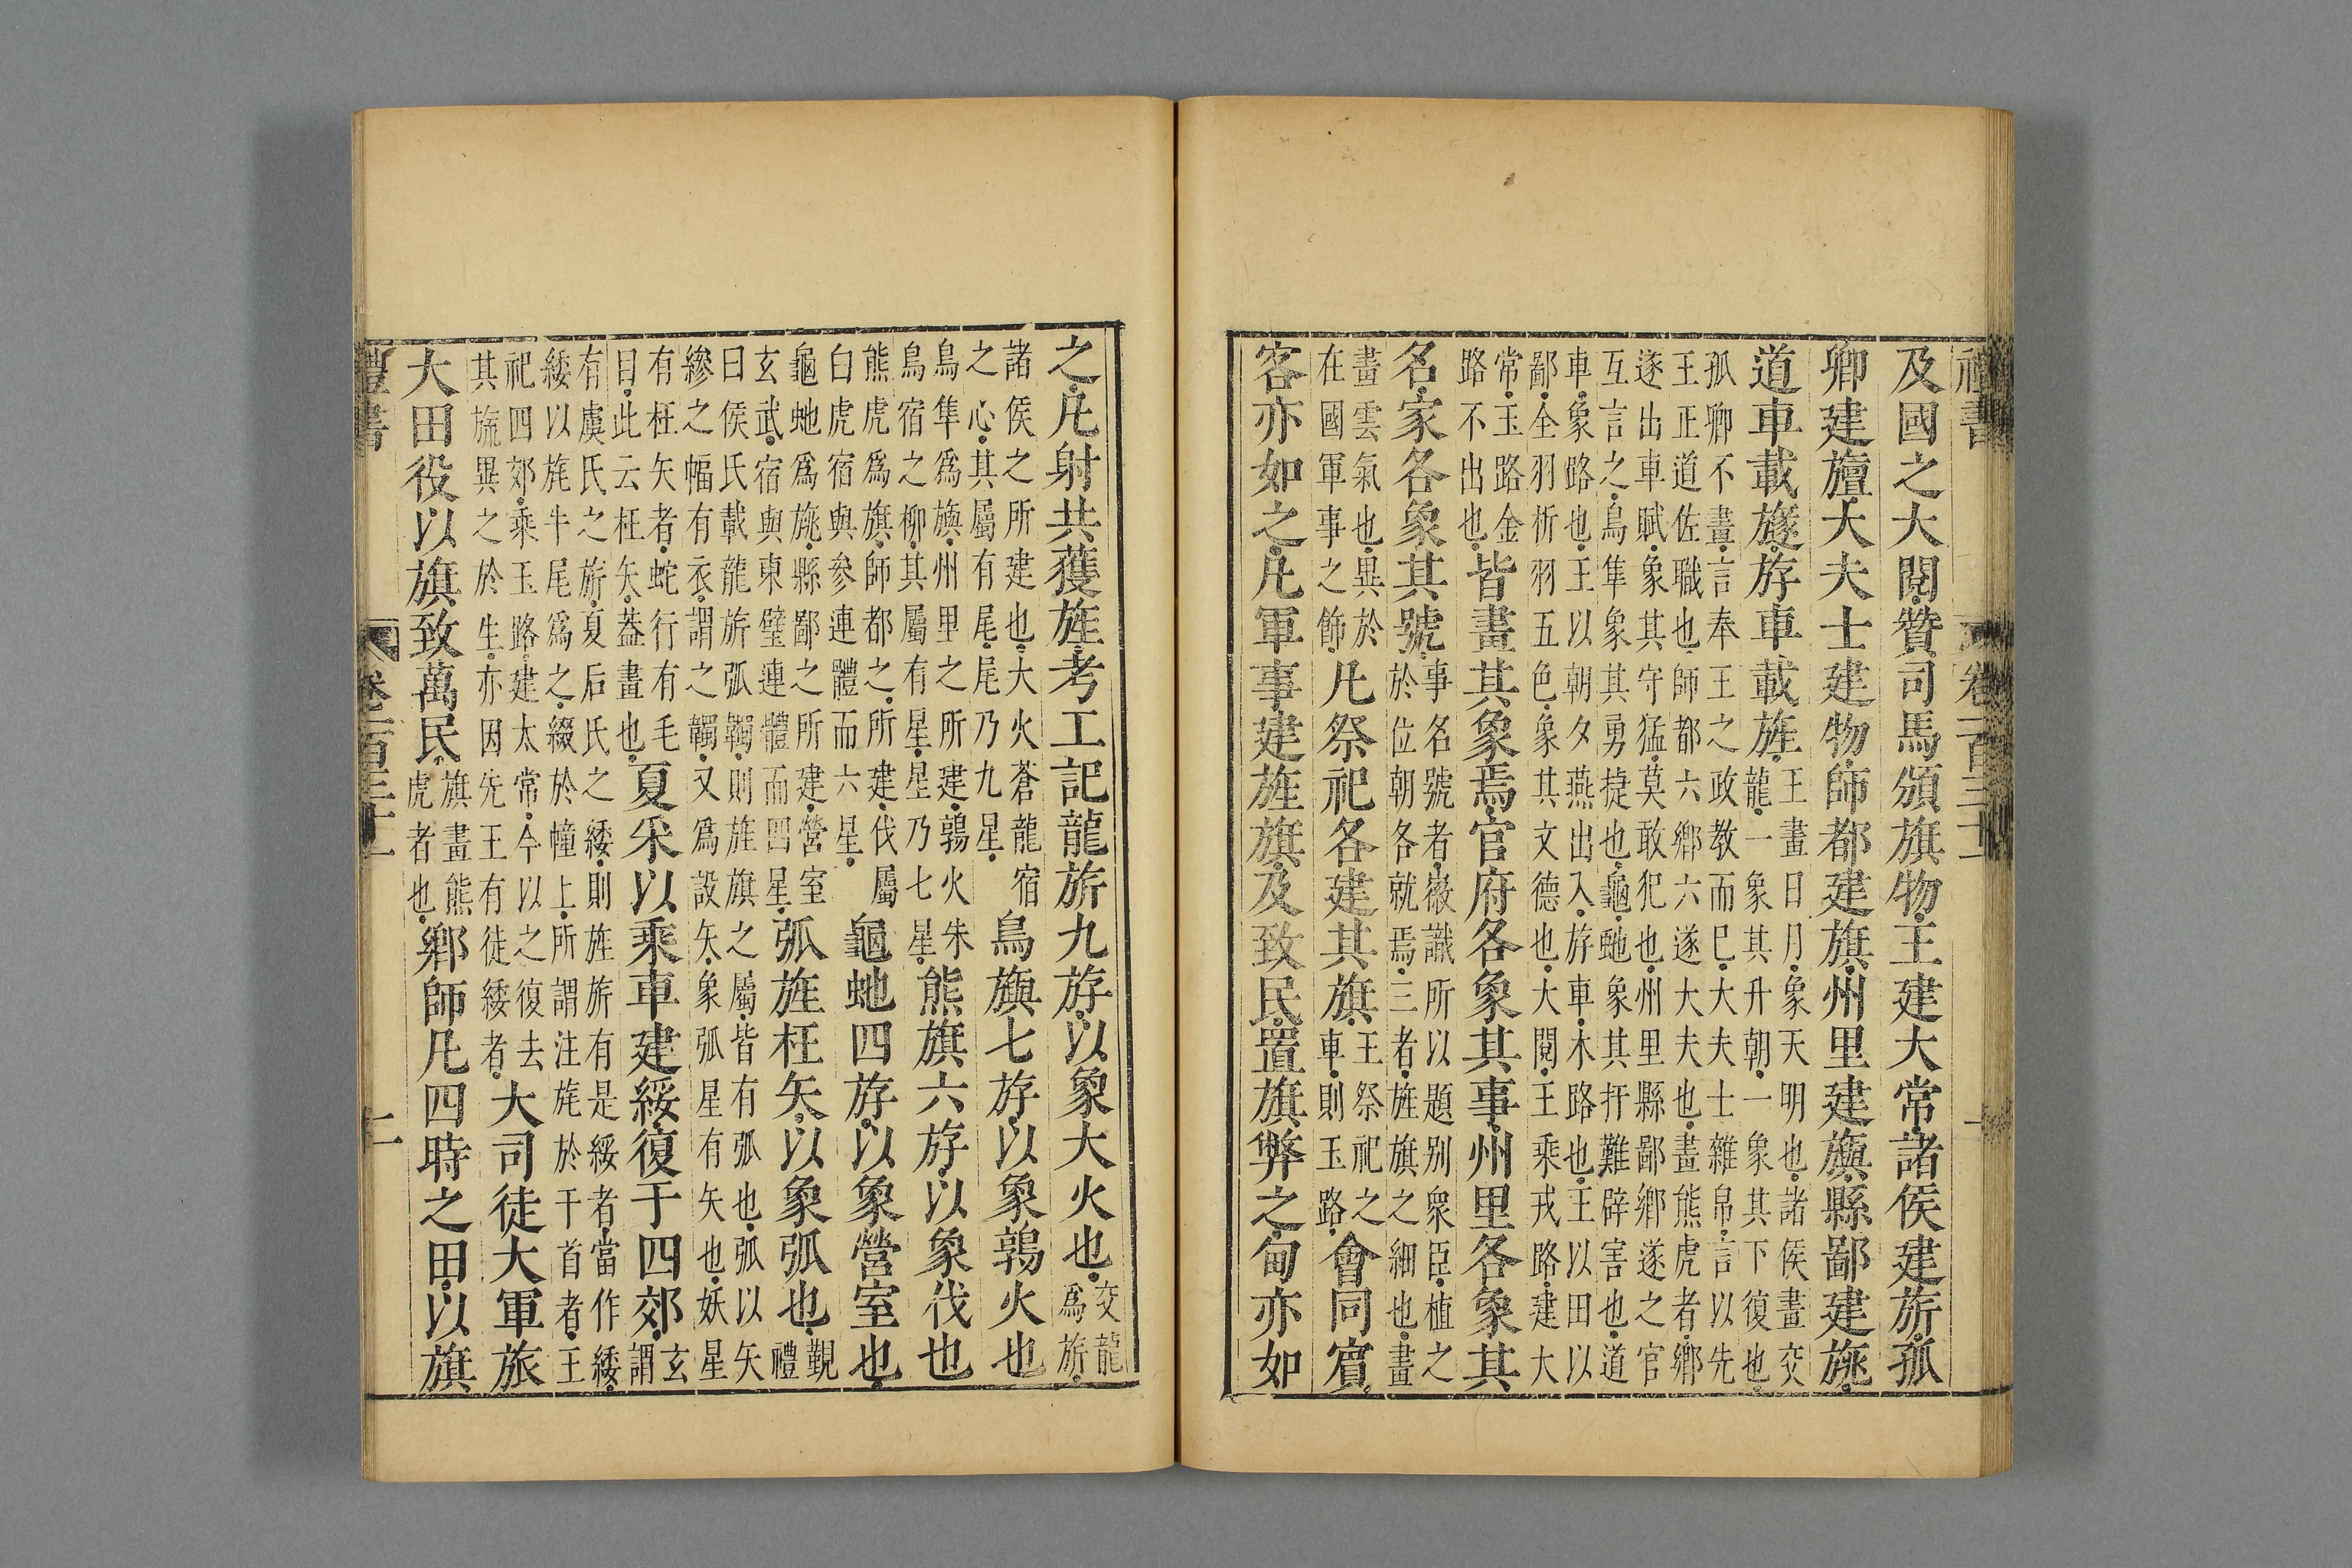 及國之大閱贊司馬頒旗物王建大常諸侯建旂孤
卿建旜大夫士建物師都建旗州里建旟縣鄙建旐
道車載旞斿車載旌
王畫日月象天明也諸侯畫交
龍一象其升朝一象其下復也
孤卿不畫言奉王之政教而巳大夫士雜帛言以先
王正道佐職也師都六鄉六遂大夫也畫熊虎者鄉
遂出車賦象其守猛莫敢犯也州里縣鄙鄉遂之官
互言之鳥隼象其勇捷也龜虵象其扞難辟害也道
車象路也王以朝夕燕出入斿車木路也王以田以
鄙全羽析羽五色象其文德也大閱王乘戎路建大
常玉路金
路不出也
皆畫其象焉官府各象其事州里各象其
名家各象其號
事名號者徽識所以題别衆臣植之
於位朝各就焉三者旌旗之細也畫
畫雲氣也異於
在國軍事之飾
凡祭祀各建其旗
王祭祀之
車則玉路
會同賓
客亦如之凡軍事建旌旗及致民置旗弊之甸亦如
之凡射共獲旌考工記龍旂九斿以象大火也
交龍
爲旂
諸侯之所建也大火蒼龍宿
之心其屬有尾尾乃九星
鳥旟七斿以象鶉火也
鳥隼爲旟州里之所建鶉火朱
鳥宿之柳其屬有星星乃七星
熊旗六斿以象伐也
熊虎爲旗師都之所建伐屬
白虎宿與參連體而六星
龜虵四斿以象營室也
龜虵爲旐縣鄙之所建營室
玄武宿與東璧連體而四星
弧旌枉矢以象弧也
覲
禮
曰侯氏載龍旂弧韣則旌旗之屬皆有弧也弧以矢
縿之幅有衣謂之韣又爲設矢象弧星有矢也妖星
有枉矢者蛇行有毛
目此云枉矢葢畫也
夏采以乘車建綏復于四郊
玄
謂
有虞氏之旂夏后氏之緌則旌旂有是綏者當作緌
緌以旄牛尾爲之綴於幢上所謂注旄於干首者王
祀四郊乘玉路建太常今以之復去
其旒異之於生亦因先王有徒緌者
大司徒大軍旅
大田役以旗致萬民
旗畫熊
虎者也
鄉師凡四時之田以旗
禮書